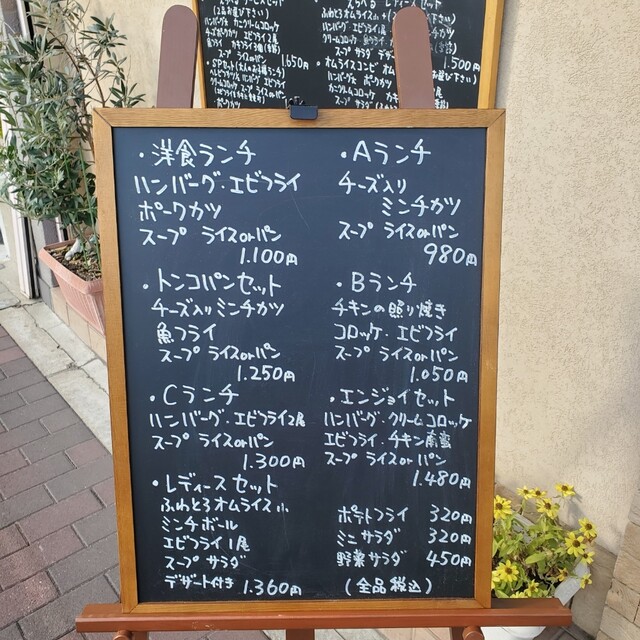 (2品お選び下さい)
ハンバーグ カニクリームコロッケ
1.650円
1.500円
・洋食ランチ
ハンバーグ・エビフライ
ポークカツ
スープ ライスorパン
1.100円
・トンコパンセット
チーズ入りミンチカツ
魚フライ
スープ ライスorパン
1.250円
・Cランチ
ハンバーグ・エビフライ2尾
スープ ライスorパン
1.300円
・レディースセット
ふわとろオムライス小
ミンチボール
エビフライ1尾
スープ サラダ
デザート付き 1.360円
・Aランチ
チーズ入り
ミンチカツ
スープ ライスorパン
980円
・Bランチ
チキンの照り焼き
コロッケ・エビフライ
スープ ライスorパン
1.050円
・エンジョイセット
ハンバーグ・クリームコロッケ
エビフライ・チキン南蛮
スープ ライスor パン
1.480円
ポテトフライ 320円
ミニサラダ 320円
野菜サラダ 450円
(全品税込)